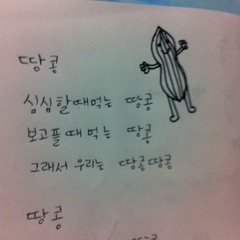 땅콩
심심할때먹는 땅콩
보고플때먹는 땅콩
그래서 우리는 땅콩땅콩
땅콩